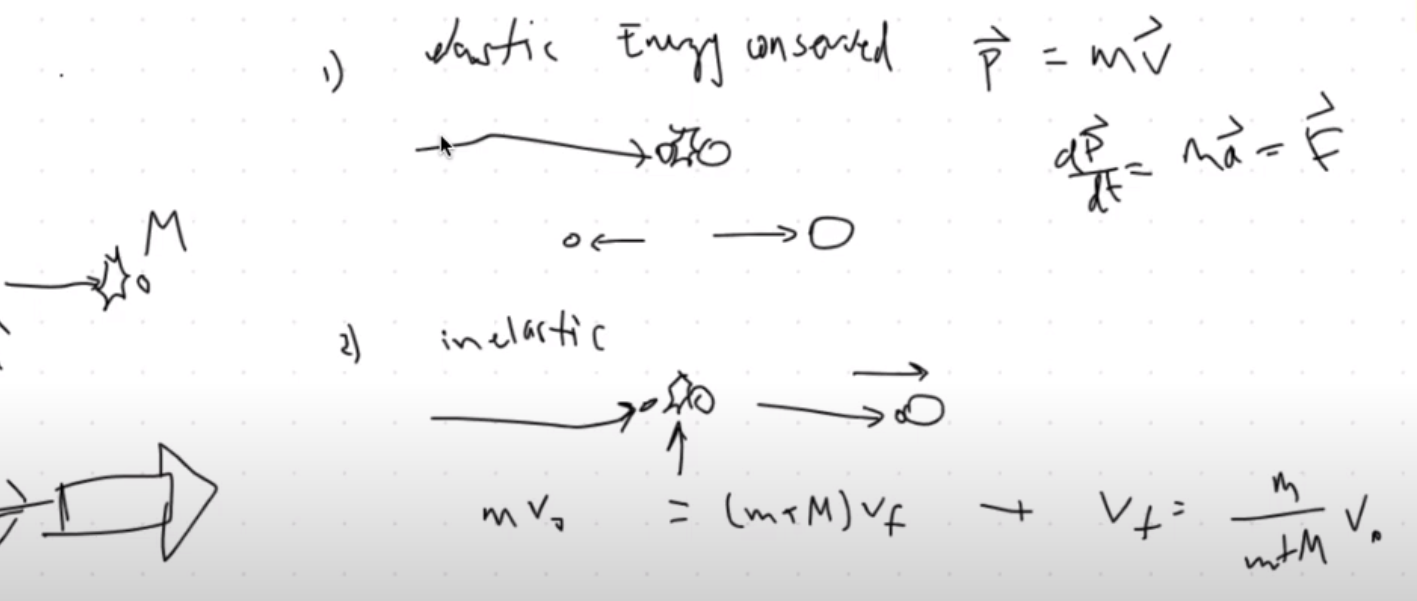 1) elastic Energy conserved p⃗ = mv⃗
dp⃗/dt = ma⃗ = F⃗
M
2) inelastic
mv₀ = (m+M)v_f → v_f = m/(m+M) v₀